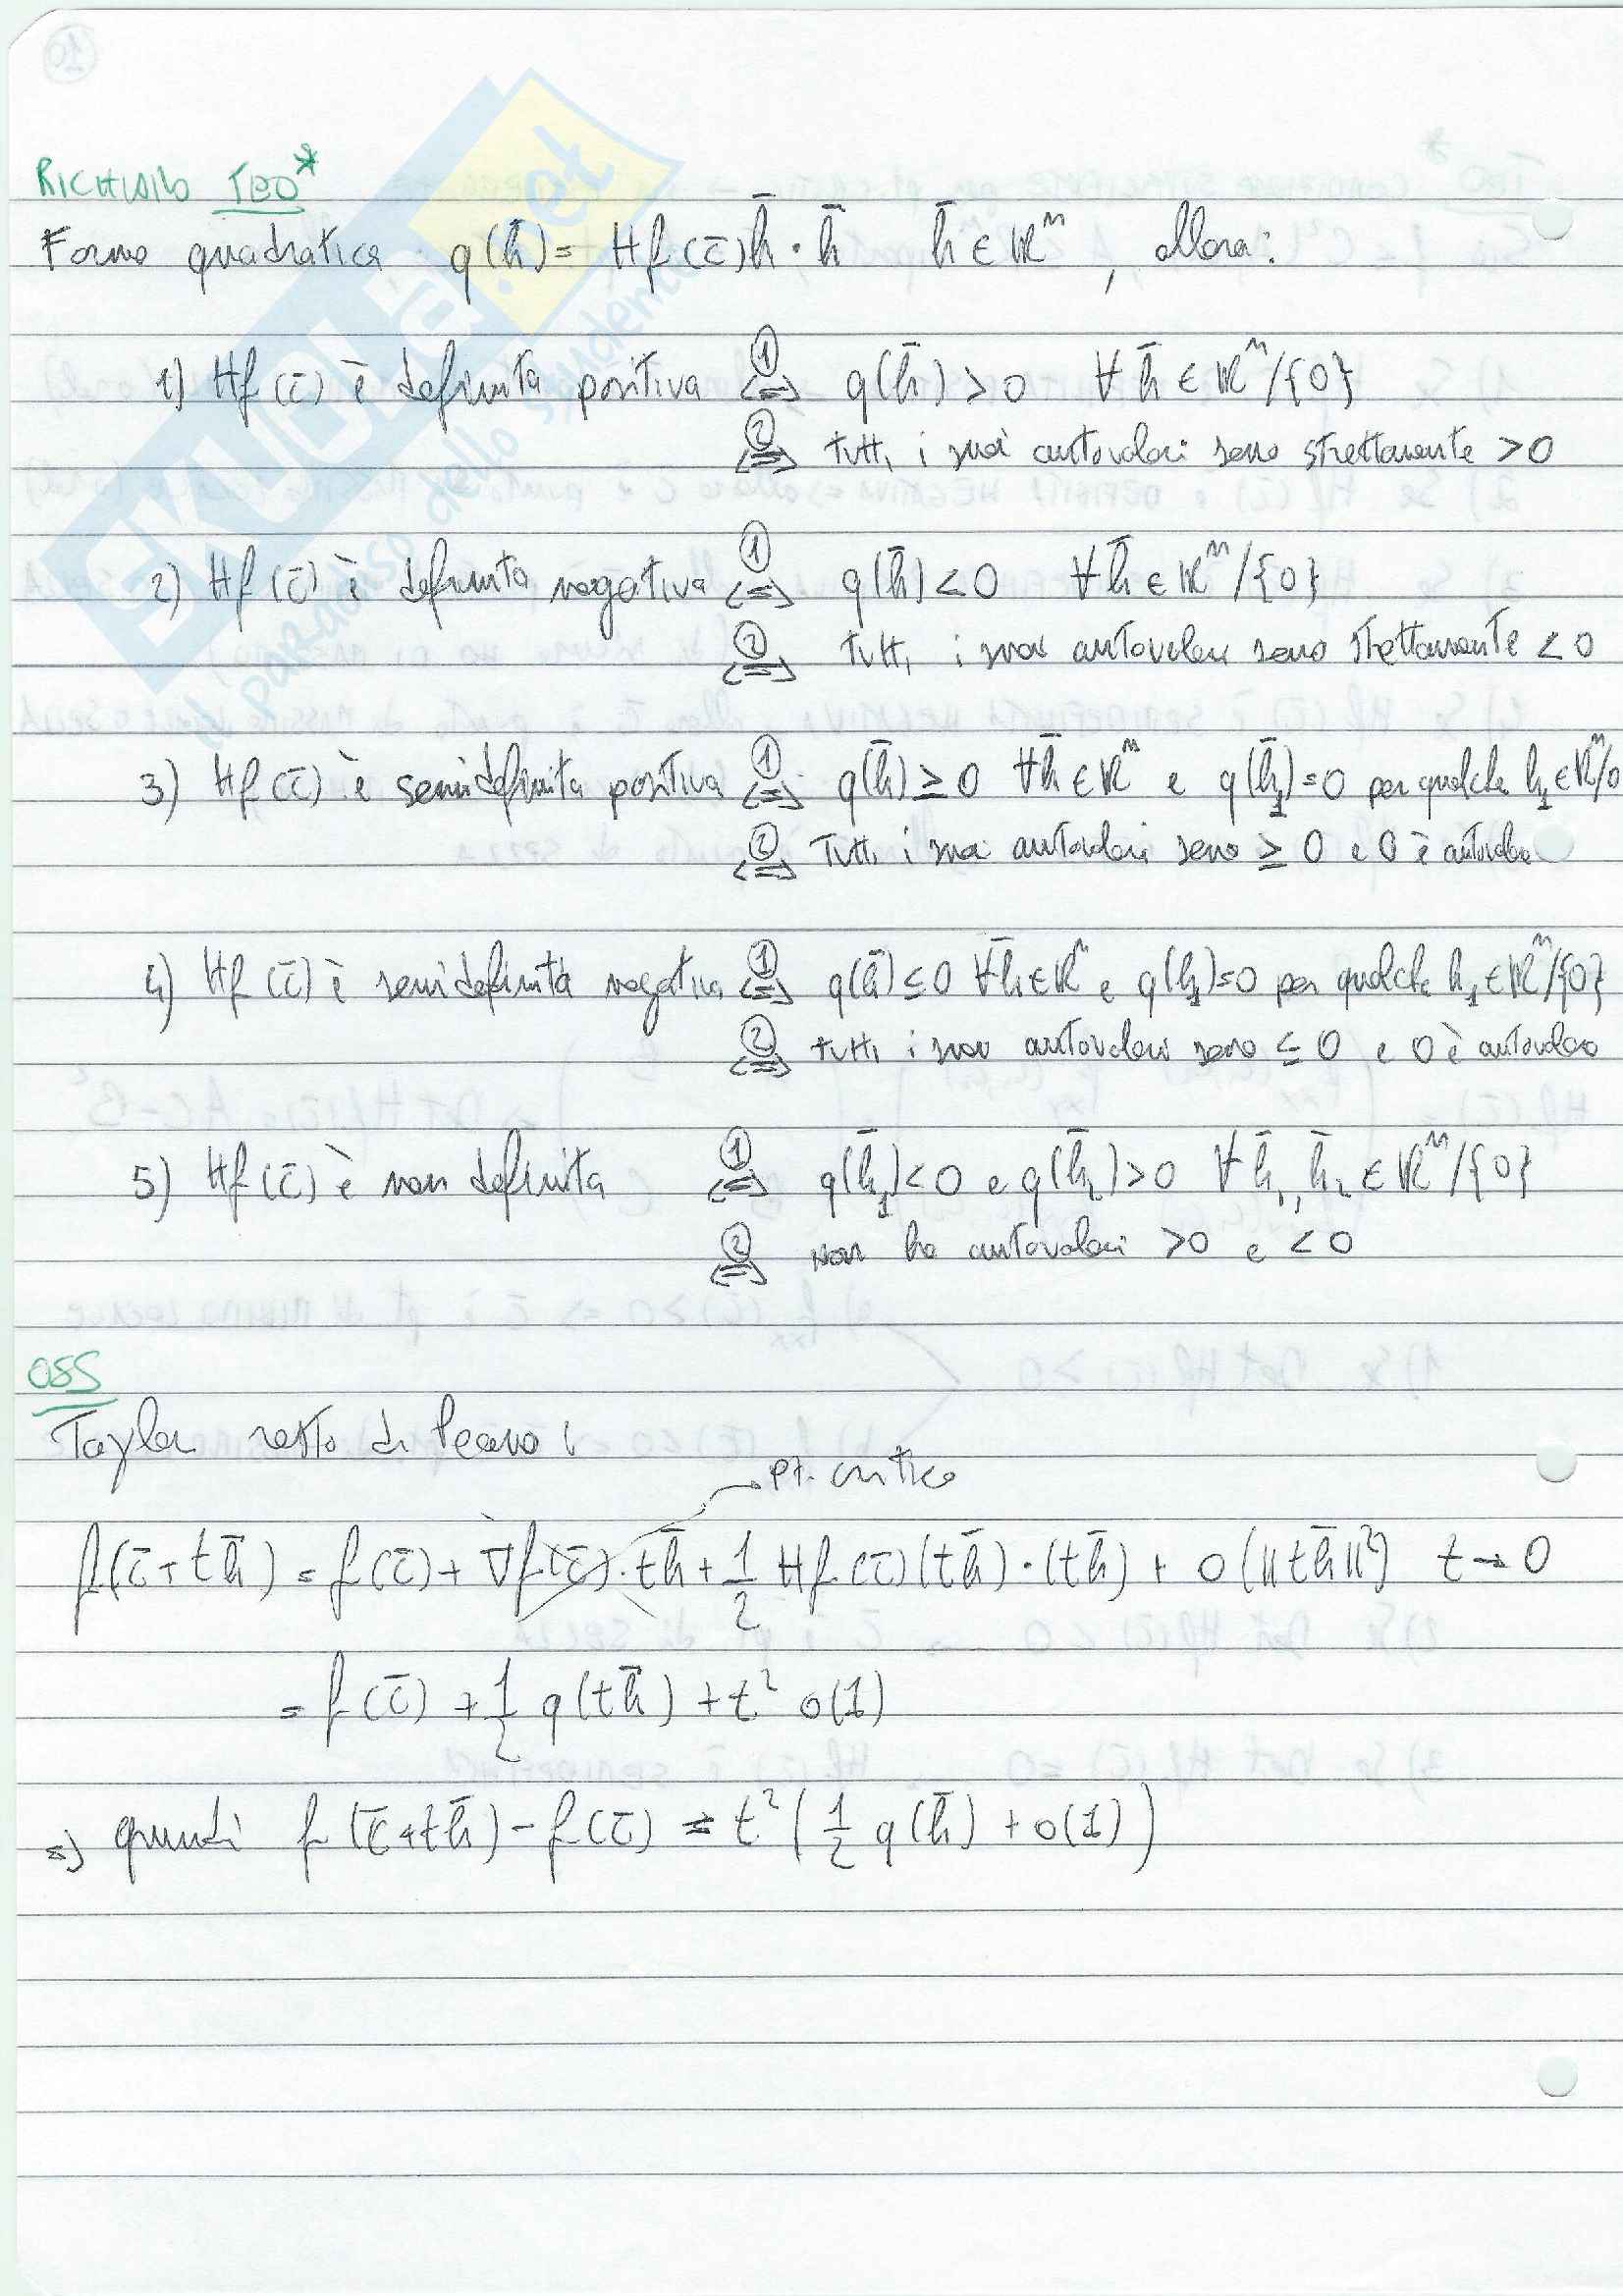 RICHIAMO TEO*
Forma quadratica q(h̄) = Hf(c̄)h̄·h̄ h̄∈ℝⁿ, allora:
1) Hf(c̄) è definita positiva ①<=> q(h̄)>0 ∀h̄∈ℝⁿ/{0}
②<=> tutti i suoi autovalori sono strettamente >0
2) Hf(c̄) è definita negativa ①<=> q(h̄)<0 ∀h̄∈ℝⁿ/{0}
②<=> tutti i suoi autovalori sono strettamente <0
3) Hf(c̄) è semidefinita positiva ①<=> q(h̄)≥0 ∀h̄∈ℝⁿ e q(h̄₁)=0 per qualche h₁∈ℝⁿ/0
②<=> tutti i suoi autovalori sono ≥0 e 0 è autovalore
4) Hf(c̄) è semidefinita negativa ①<=> q(h̄)≤0 ∀h∈ℝⁿ e q(h₁)=0 per qualche h₁∈ℝⁿ/{0}
②<=> tutti i suoi autovalori sono ≤0 e 0 è autovalore
5) Hf(c̄) è non definita ①<=> q(h̄₁)<0 e q(h̄₂)>0 ∀h̄₁,h̄₂∈ℝⁿ/{0}
②<=> non ha autovalori >0 e <0
OSS
Taylor resto di Peano:
pt. critico
f(c̄+th̄) = f(c̄)+∇f(c̄)·th̄+1/2 Hf(c̄)(th̄)·(th̄) + o(||th̄||²) t→0
= f(c̄) + 1/2 q(th̄) + t² o(1)
=> quindi f(c̄+th̄)-f(c̄) = t²(1/2 q(h̄) + o(1))
SKUOLA.net
il paradiso dello studente